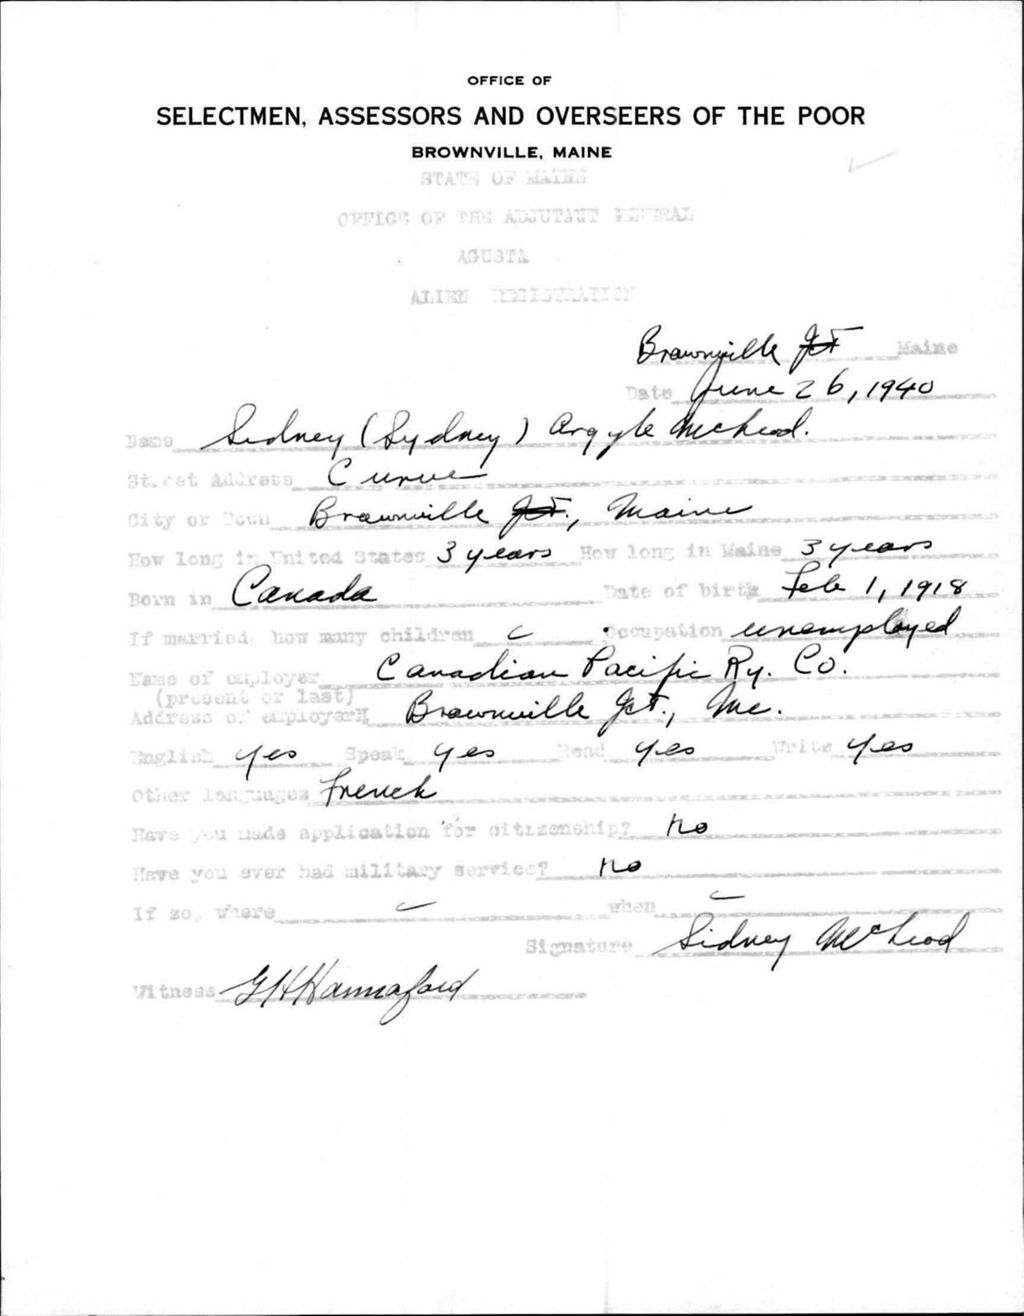 OFFICE OF
SELECTMEN, ASSESSORS AND OVERSEERS OF THE POOR
BROWNVILLE, MAINE
STATE OF MAINE
OFFICE OF THE ADJUTANT GENERAL
AGUSTA
ALIEN REGISTRATION
Brownville Jct Maine
Date June 26, 1940
Name Sidney (Sydney) Argyle McLeod.
Street Address Curve
City or Town Brownville Jct., Maine
How long in United States 3 years How long in Maine 3 years
Born in Canada Date of birth Feb 1, 1918
If married, how many children Occupation unemployed
Name of employer Canadian Pacific Ry. Co.
(present or last)
Address of employer Brownville Jct., Me.
English yes Speak yes Read yes Write yes
Other languages French
Have you made application for citizenship? no
Have you ever had military service? no
If so, where when
Signature Sidney McLeod
Witness G H Hannaford